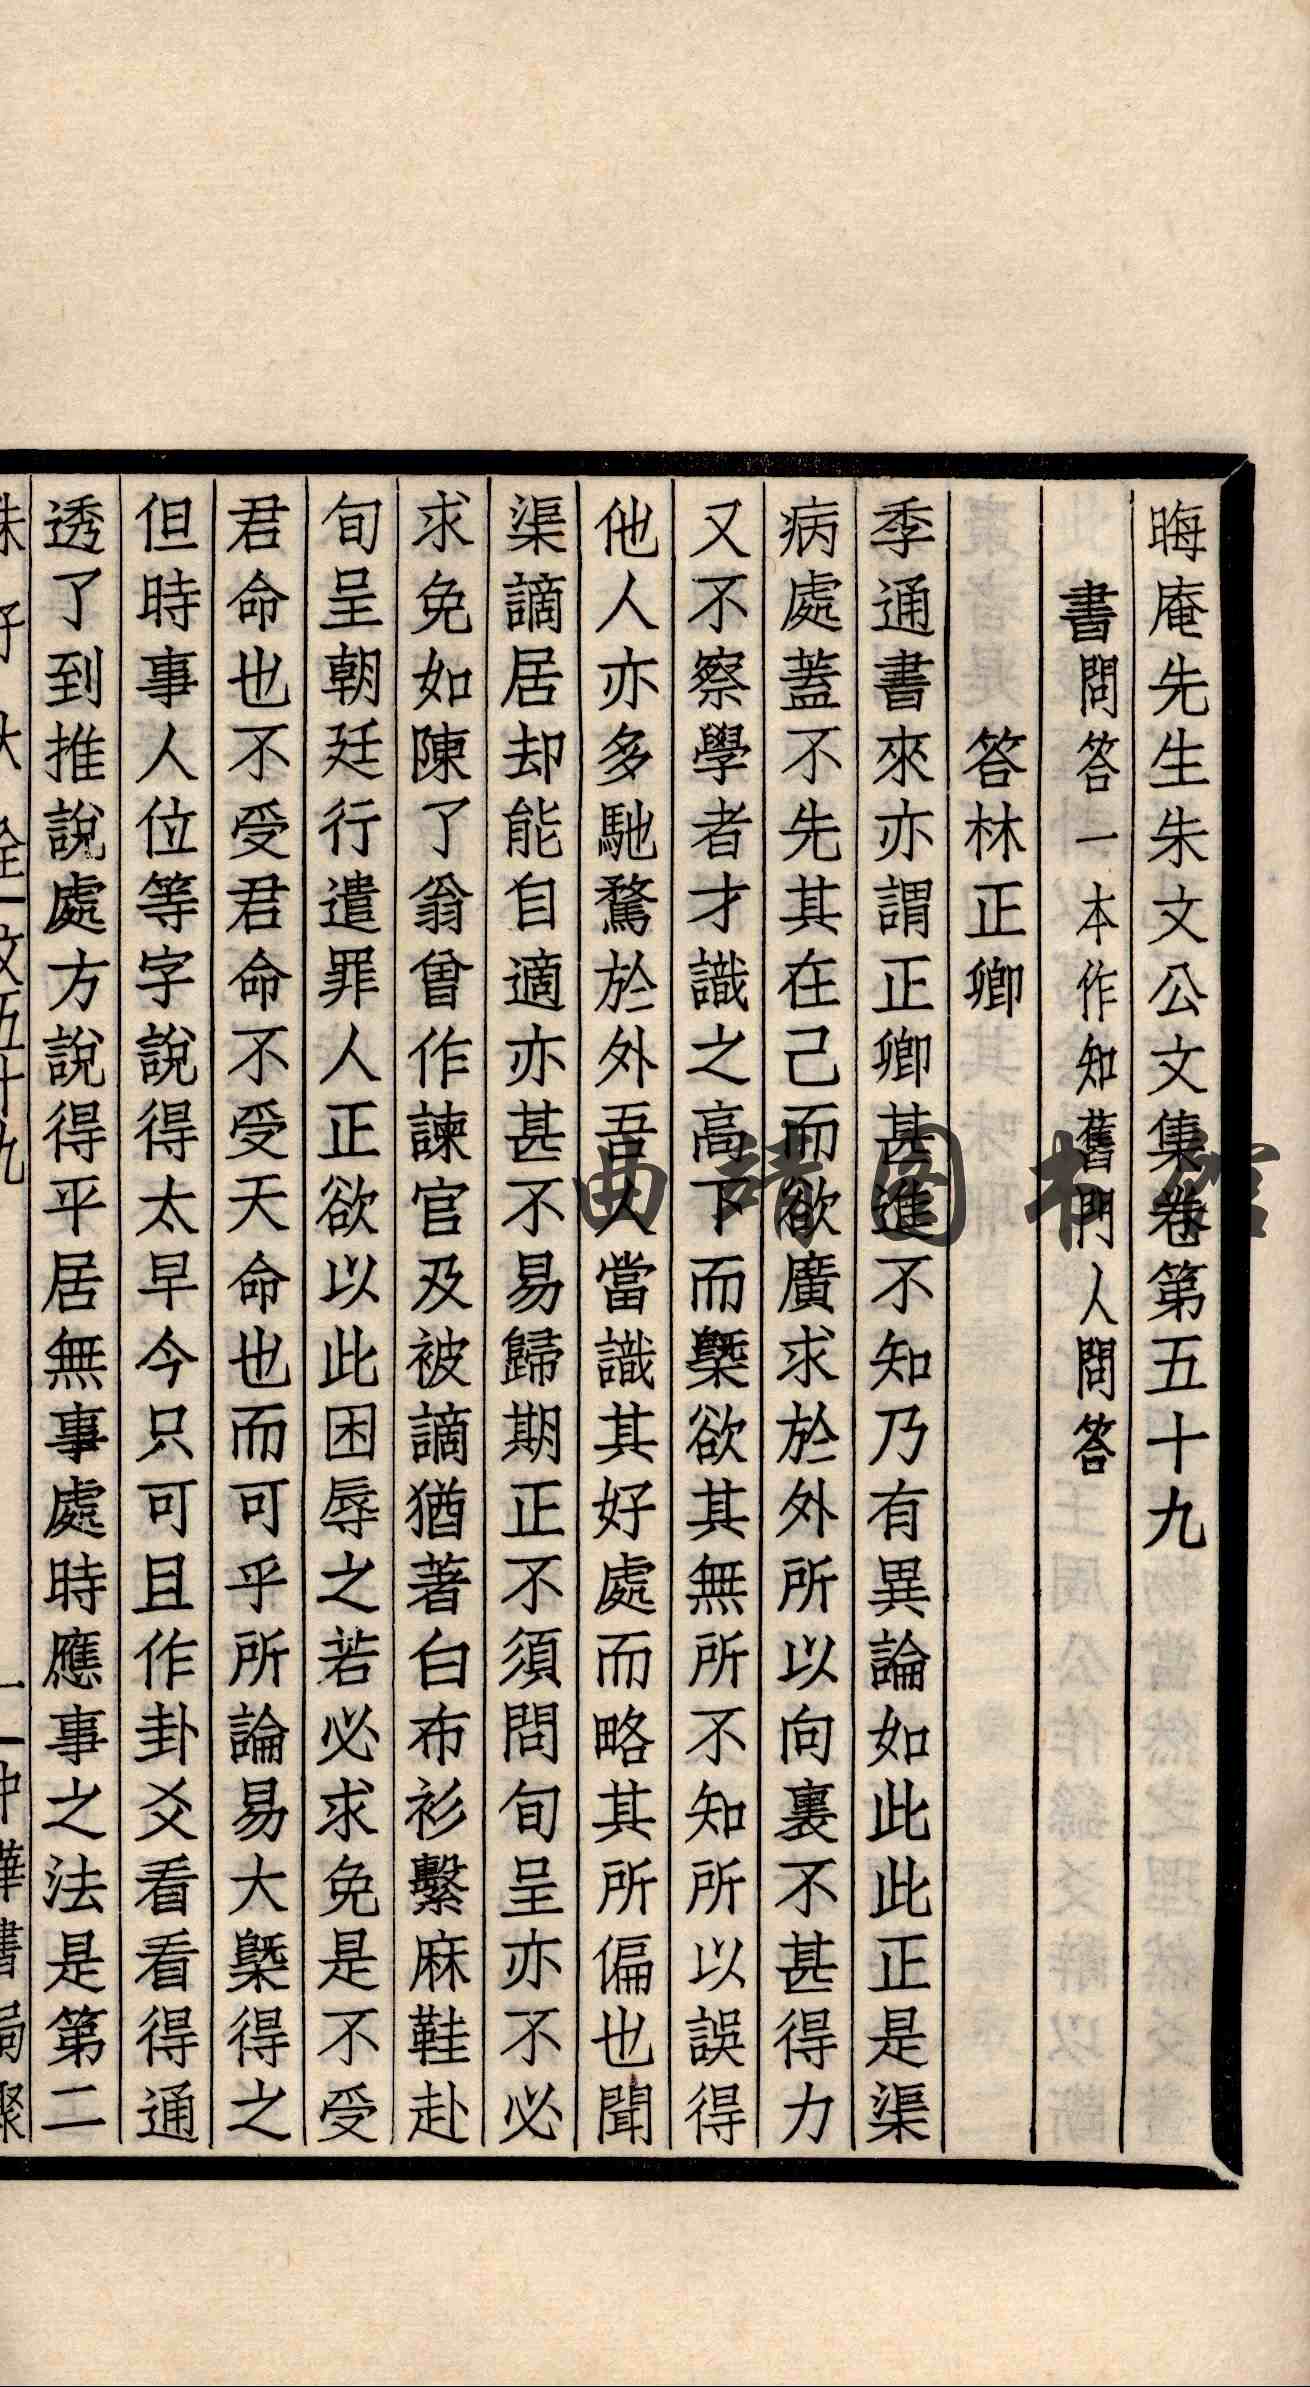 晦庵先生朱文公文集卷第五十九
書問答一本作知舊門人問答
答林正卿
季通書來亦謂正卿甚進不知乃有異論如此此正是渠
病處蓋不先其在己而欲廣求於外所以向裏不甚得力
又不察學者才識之高下而槩欲其無所不知所以誤得
他人亦多馳騖於外吾人當識其好處而略其所偏也聞
渠謫居却能自適亦甚不易歸期正不須問旬呈亦不必
求免如陳了翁曾作諫官及被謫猶著白布衫繫麻鞋赴
旬呈朝廷行遣罪人正欲以此困辱之若必求免是不受
君命也不受君命不受天命也而可乎所論易大槩得之
但時事人位等字說得太早今只可且作卦爻看看得通
透了到推說處方說得平居無事處時應事之法是第二
朱子大全 文五十九
一 中華書局聚
曲靖图书馆